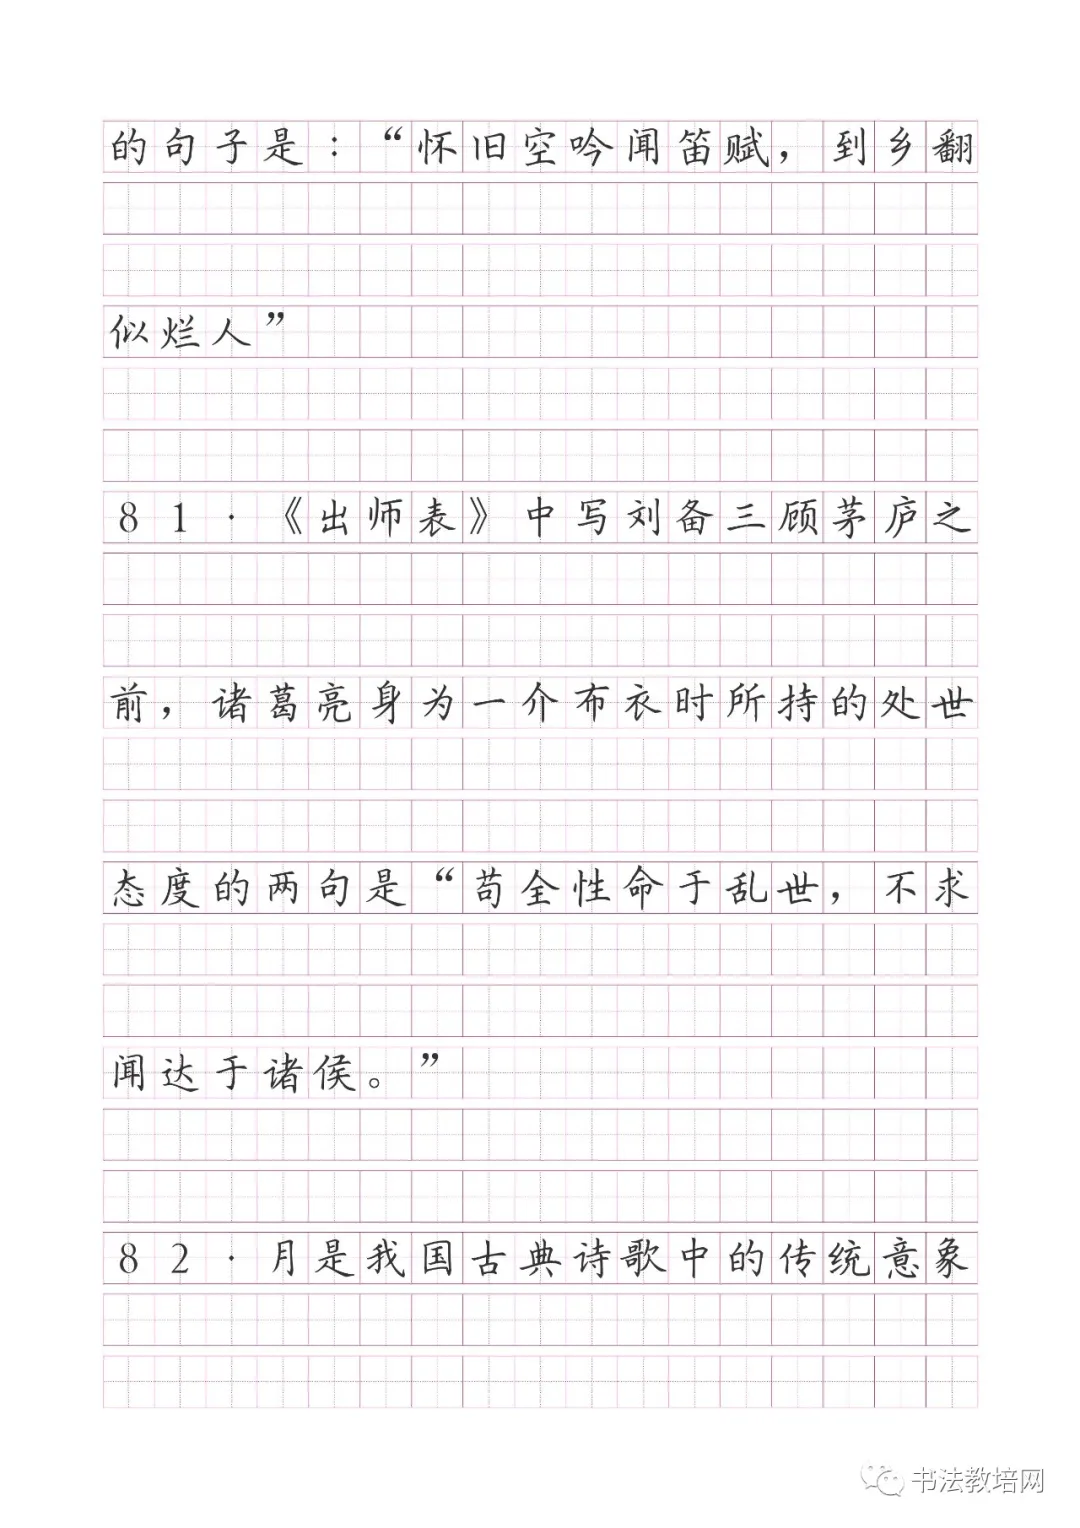 的句子是：“怀旧空吟闻笛赋，到乡翻
似烂人”
81·《出师表》中写刘备三顾茅庐之
前，诸葛亮身为一介布衣时所持的处世
态度的两句是“苟全性命于乱世，不求
闻达于诸侯。”
82·月是我国古典诗歌中的传统意象
书法教培网